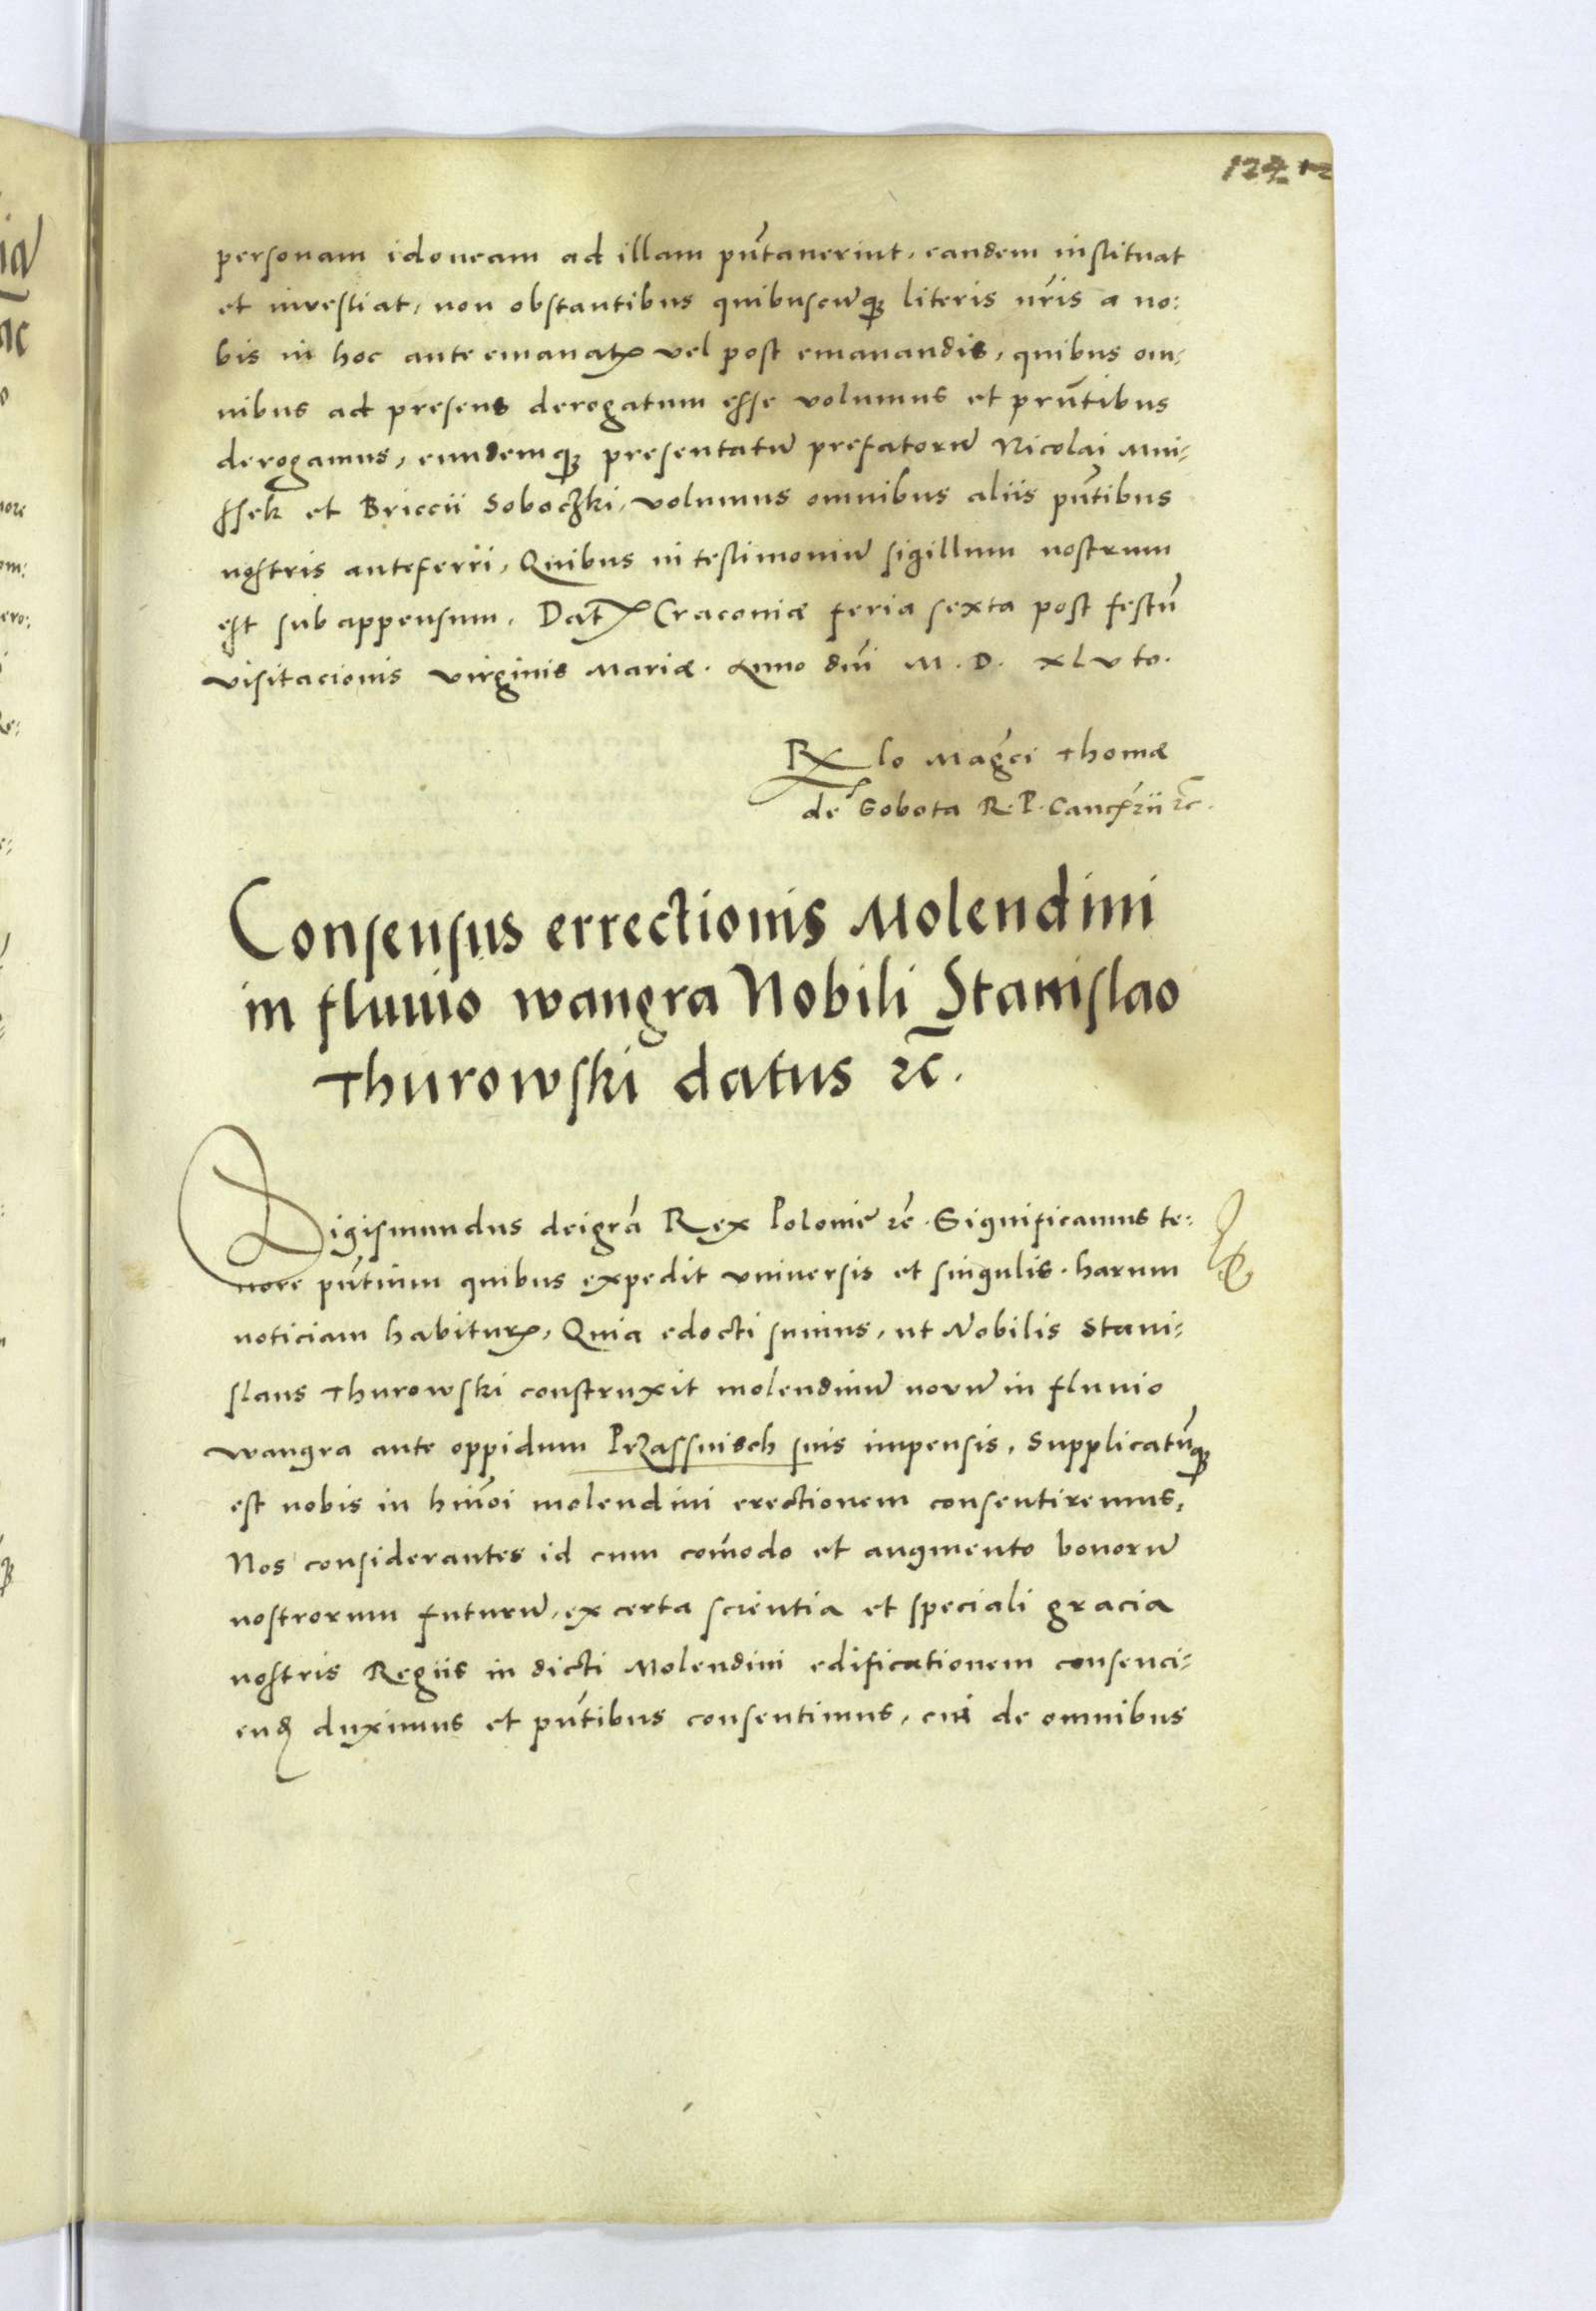 personam idoneam ad illam pn̄tanerint, eandem instituat
et investiat, non obstantibus quibuscūq3 literis nr̄is a no:
bis in hoc ante emanatꝭ vel post emanandis, quibus om-
nibus ad presens derogatum esse volumus et prn̄tibus
derogamus, eundemq3 presentatū prefatorū Nicolai Mni-
ssek et Briccii Soboczki, volumus omnibus aliis pn̄tibus
nostris anteferri, Quibus in testimoniū sigillum nostrum
est sub appensum. Datꝭ Cracoviæ feria sexta post festū
visitacionis virginis Mariæ. Anno dn̄i M. D. XLVto.
Rx lo Mag̅ci Thomæ
de Sobota R. P. Cancr̄ii ꝛc̄.
Consensus errectionis Molendini
in fluuio wangra Nobili Stanislao
Thurowski datus ꝛc̄.
Sigismundus deigr̄a Rex Polonie ꝛc̄. Significamus te:
nore pn̄tium quibus expedit vniversis et singulis. harum
noticiam habiturꝭ, Quia edocti sumus, ut Nobilis Stani-
slaus Thurowski construxit molendinū novū in fluuio
wangra ante oppidum Przassnisch suis impensis, Supplicatūq3
est nobis in hmōi molendini erectionem consentiremus,
Nos considerantes id cum com̄odo et augmento bonorū
nostrorum futurū, ex certa scientia et speciali gracia
nostris Regiis in dicti Molendini edificationem consenci-
end duximus et pn̄tibus consentimus, cui de omnibus